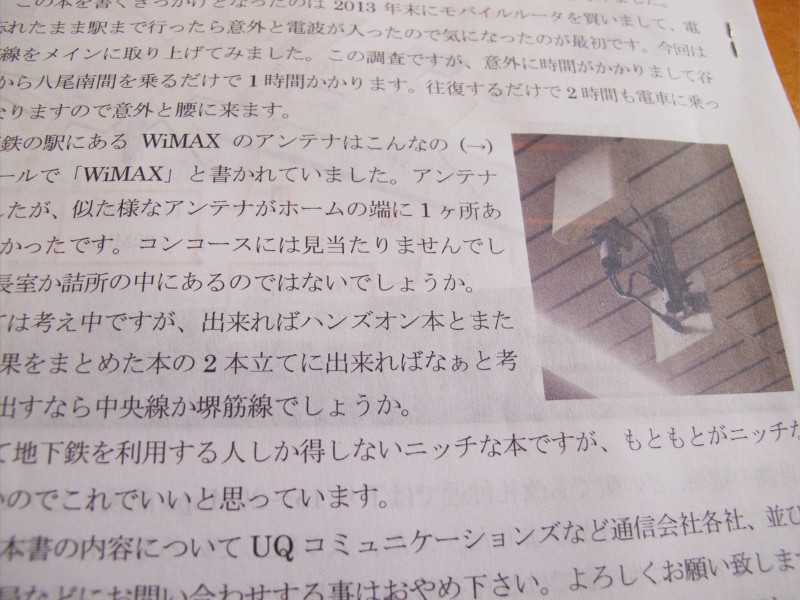 この本を書くきっかけとなったのは 2013 年末にモバイルルータを買いまして、電
忘れたまま駅まで行ったら意外と電波が入ったので気になったのが最初です。今回は
線をメインに取り上げてみました。この調査ですが、意外に時間がかかりまして谷
から八尾南間を乗るだけで 1 時間かかります。往復するだけで 2 時間も電車に乗っ
なりますので意外と腰に来ます。
鉄の駅にある WiMAX のアンテナはこんなの (→)
ールで「WiMAX」と書かれていました。アンテナ
したが、似た様なアンテナがホームの端に 1 ヶ所あ
かったです。コンコースには見当たりませんでし
長室か詰所の中にあるのではないでしょうか。
ては考え中ですが、出来ればハンズオン本とまた
果をまとめた本の 2 本立てに出来ればなぁと考
出すなら中央線か堺筋線でしょうか。
て地下鉄を利用する人しか得しないニッチな本ですが、もともとがニッチな
いのでこれでいいと思っています。
本書の内容について UQ コミュニケーションズなど通信会社各社、並び
局などにお問い合わせする事はおやめ下さい。よろしくお願い致します